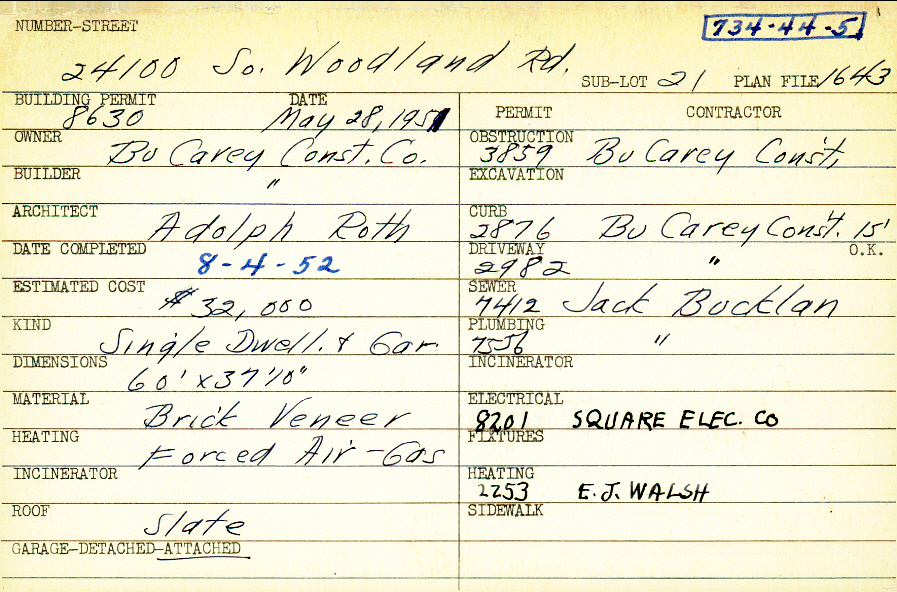 NUMBER-STREET
734-44-5
24100 So. Woodland Rd.
SUB-LOT 21 PLAN FILE 1643
BUILDING PERMIT DATE
8630 May 28, 1951
OWNER
Bu Carey Const. Co.
BUILDER
"
ARCHITECT
Adolph Roth
DATE COMPLETED
8-4-52
ESTIMATED COST
$32,000
KIND
Single Dwell. & Gar.
DIMENSIONS
60' x 37'10"
MATERIAL
Brick Veneer
HEATING
Forced Air-Gas
INCINERATOR
ROOF
Slate
GARAGE-DETACHED-ATTACHED
PERMIT CONTRACTOR
OBSTRUCTION
3859 Bu Carey Const,
EXCAVATION
CURB
2876 Bu Carey Const. 15'
DRIVEWAY O.K.
2982 "
SEWER
7412 Jack Bucklan
PLUMBING
7556 "
INCINERATOR
ELECTRICAL
8201 SQUARE ELEC. CO
FIXTURES
HEATING
2253 E.J. WALSH
SIDEWALK